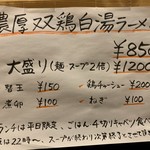 濃厚双鶏白湯ラーメン
¥850
大盛り(麺・スープ2倍) ¥1200
替玉 ¥150 鶏チャーシュー ¥200
煮卵 ¥100 ねぎ ¥100
ランチは平日限定、ごはん 4切りチャペン食べ
は22時〜、スープが終わり次第終了とさせて